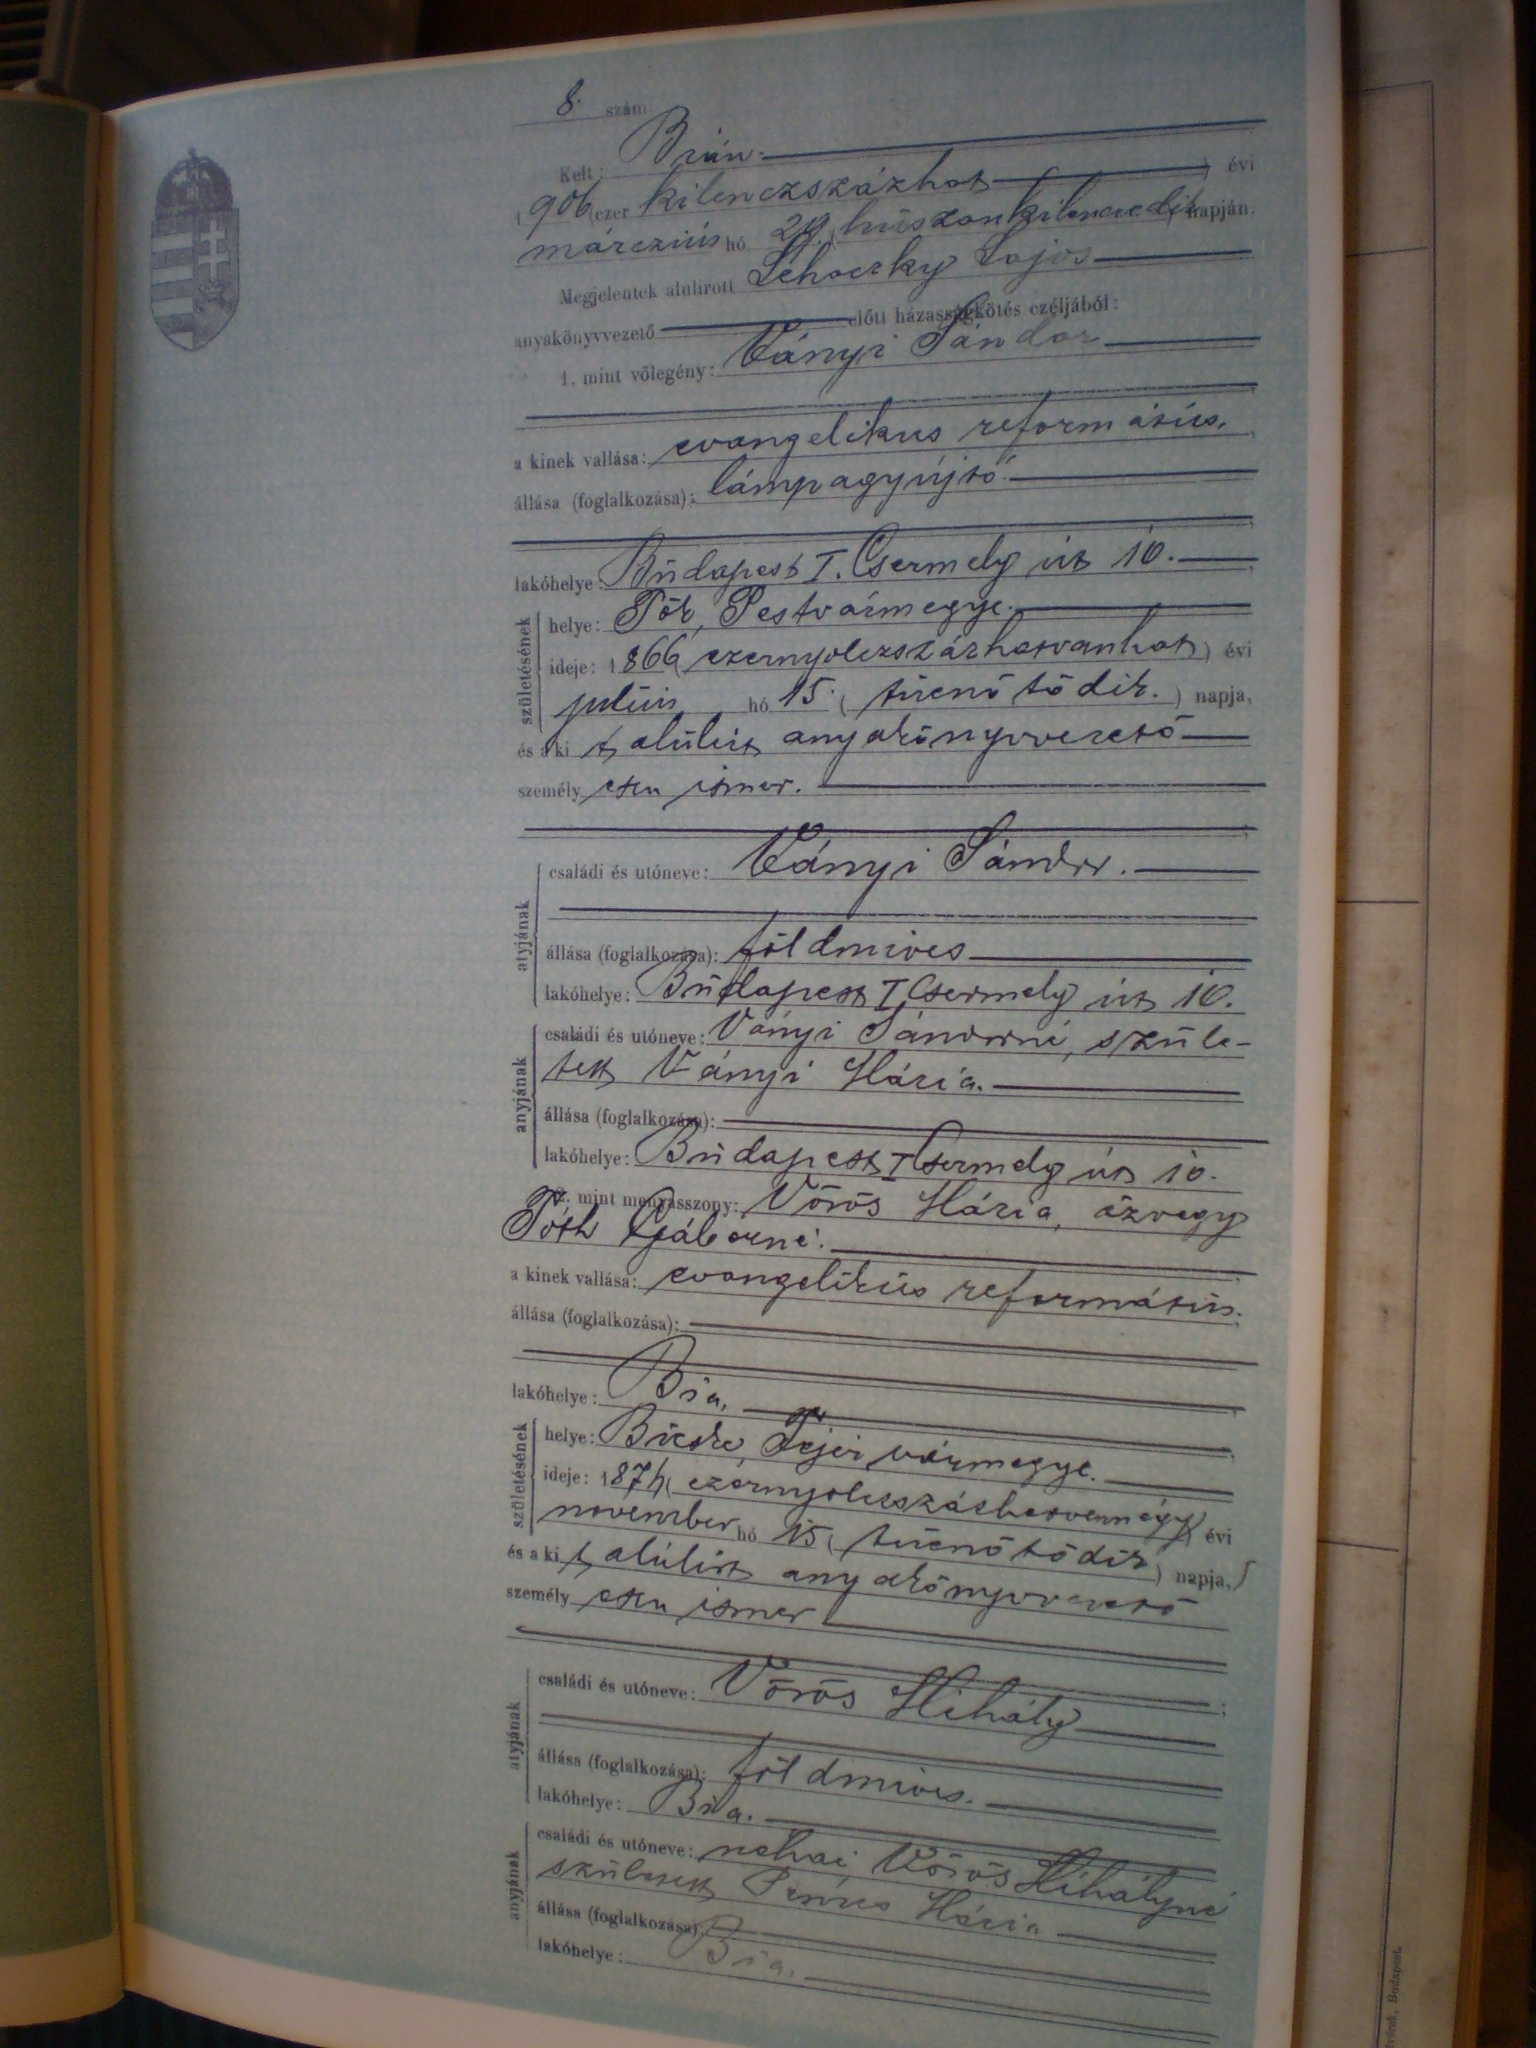 8. szám
Kelt: Bián.
1906 (ezer kilenczszázhat ) évi
márczius hó 29. (huszonkilenczedik napján.
Megjelentek alulirott Lehoczky Lajos
anyakönyvvezető előtt házasságkötés czéljából:
1. mint vőlegény: Ványi Sándor
a kinek vallása: evangelikus református.
állása (foglalkozása): lámpagyújtó.
lakóhelye: Budapest I. Csermely út 10.
születésének
helye: Tök, Pestvármegye.
ideje: 1866 (ezernyolczszázhatvanhat) évi
julius hó 15. (tizenötödik.) napja,
és a ki t, alulirt anyakönyvvezető
személyesen ismer.
atyjának
családi és utóneve: Ványi Sándor.
állása (foglalkozása): földmives
lakóhelye: Budapest I Csermely út 10.
anyjának
családi és utóneve: Ványi Sándorné, szüle-
tett Ványi Mária.
állása (foglalkozása):
lakóhelye: Budapest I Csermely út 10.
2. mint menyasszony: Vörös Mária, özvegy
Tóth Gáborné.
a kinek vallása: evangelikus református.
állása (foglalkozása):
lakóhelye: Bia,
születésének
helye: Bicske, Fejér vármegye.
ideje: 1874 (ezernyolczszázhetvennégy) évi
november hó 15 (tizenötödik) napja,
és a ki t, alulirt anyakönyvvezető
személyesen ismer
atyjának
családi és utóneve: Vörös Mihály
állása (foglalkozása): földmives.
lakóhelye: Bia.
anyjának
családi és utóneve: néhai Vörös Mihályné
született Mária
állása (foglalkozása):
lakóhelye: Bia.
Budapest.